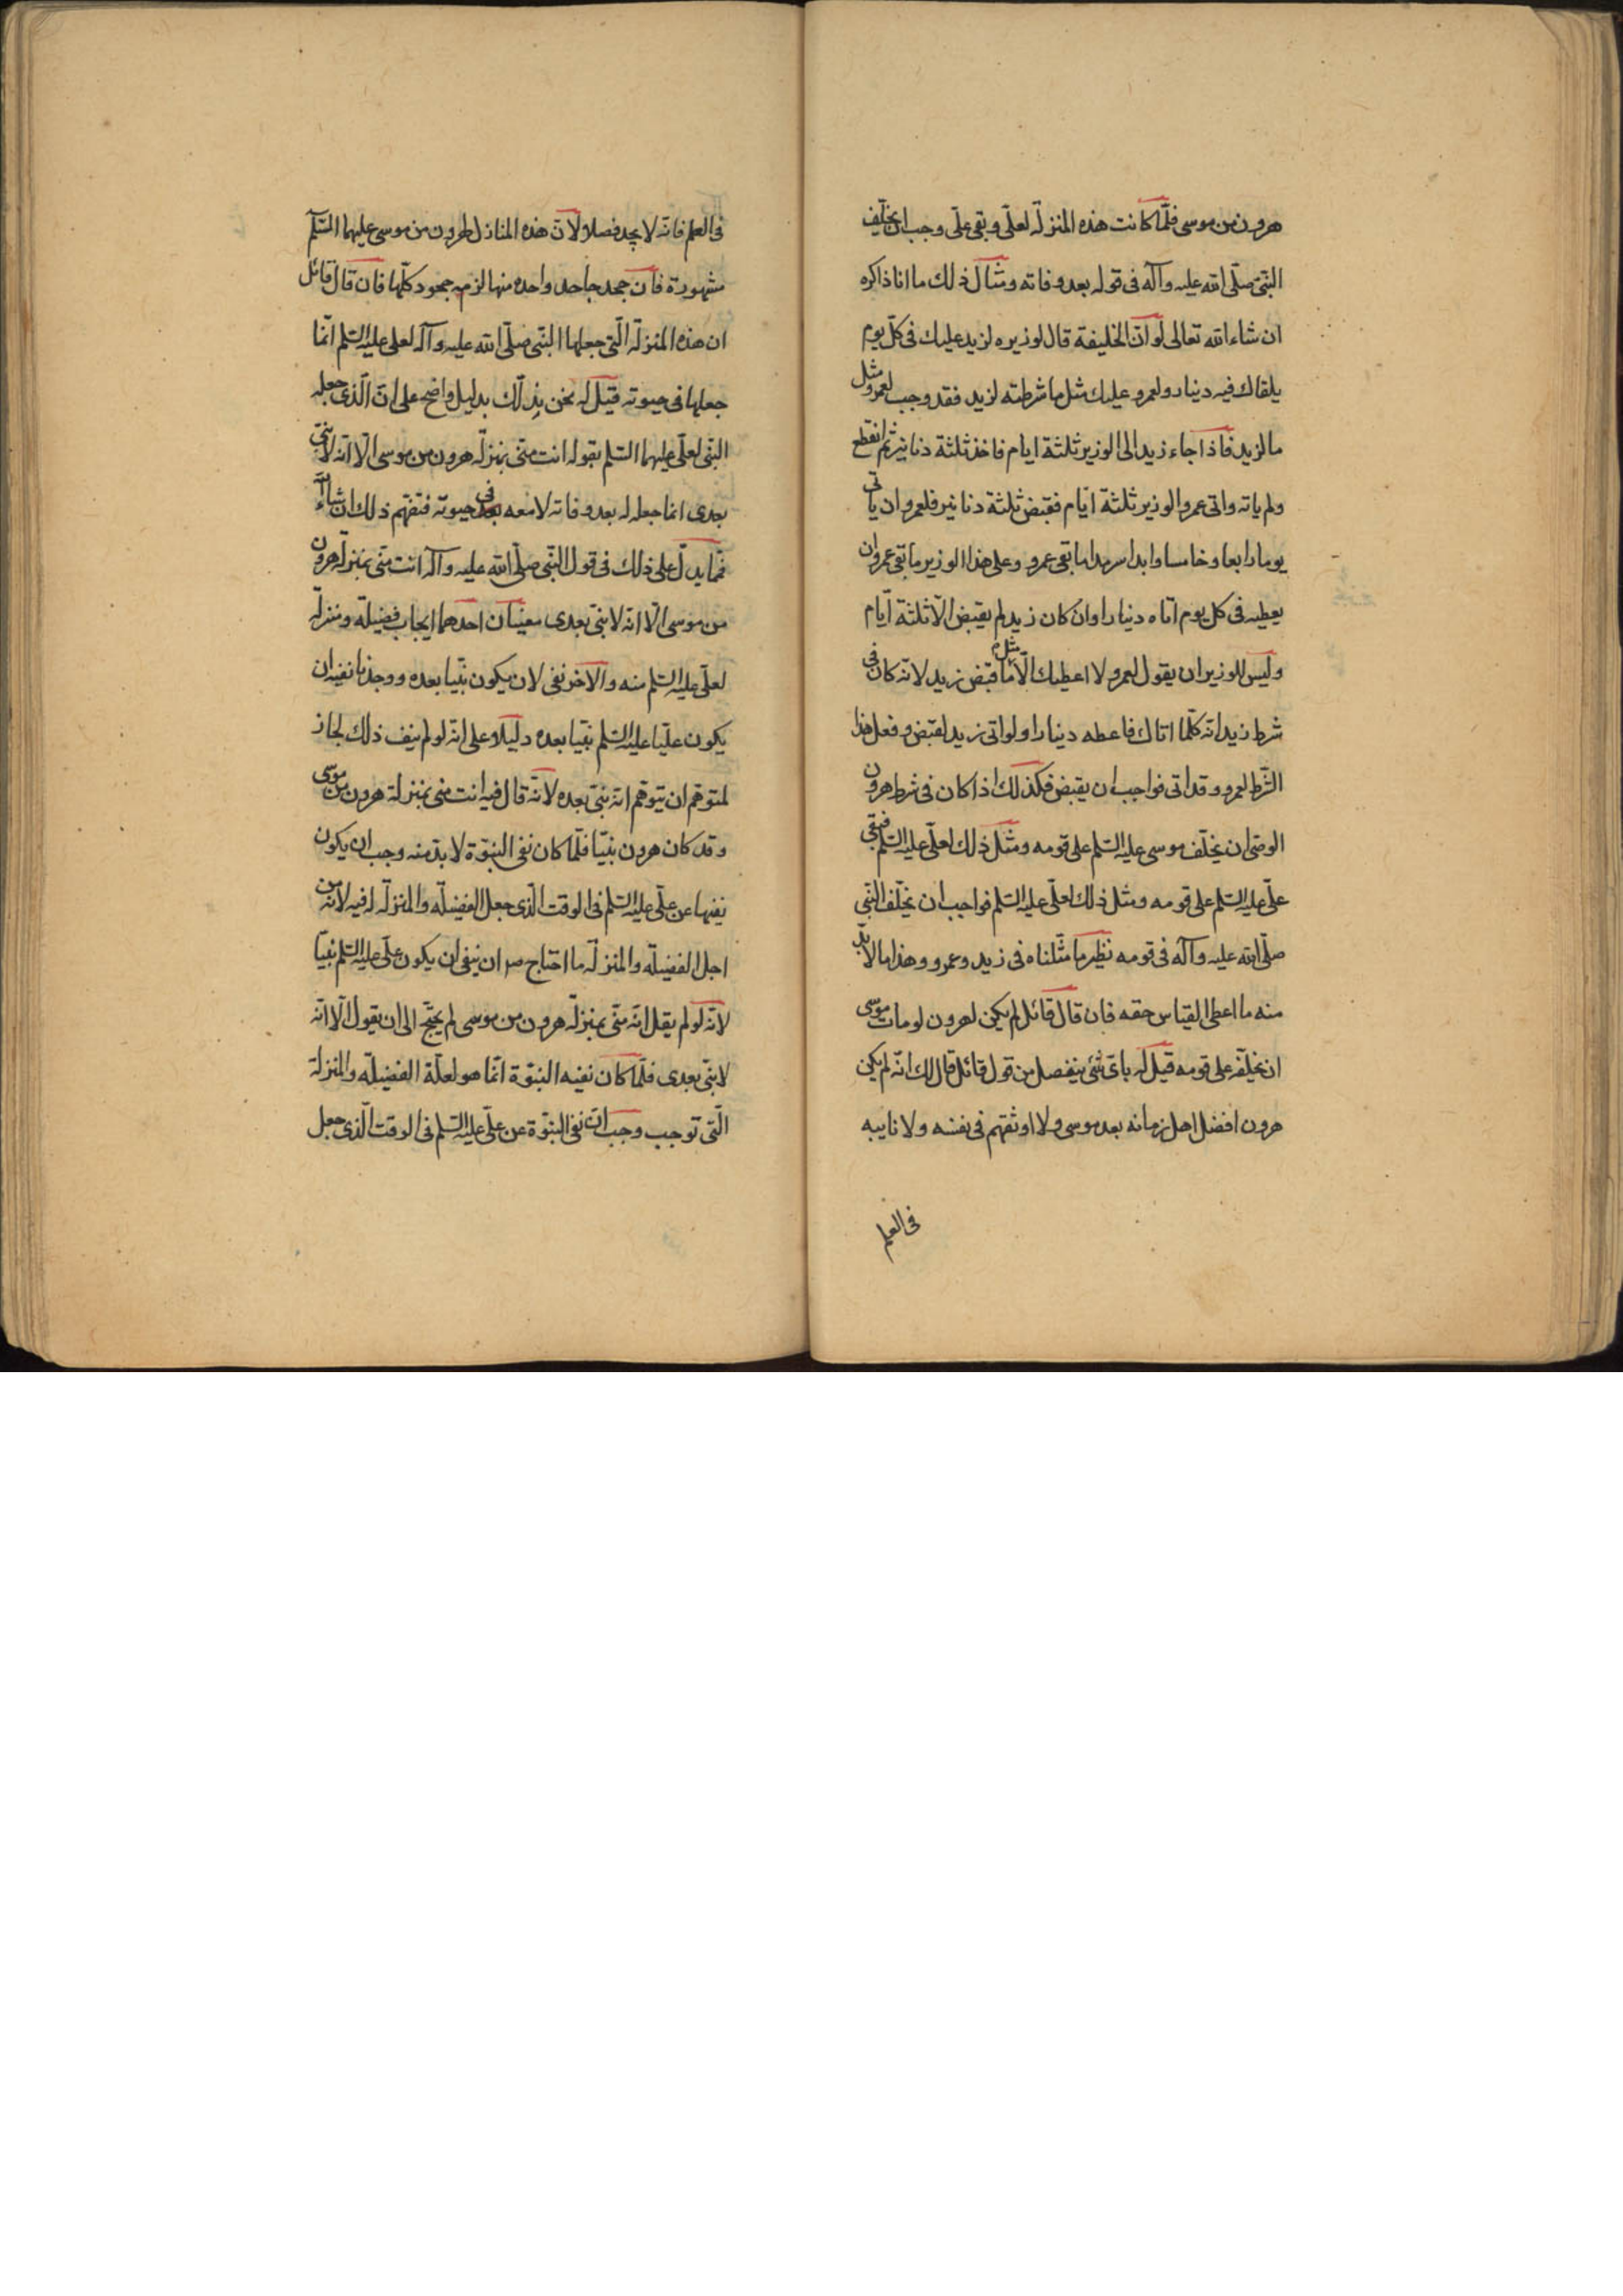 هرون من موسى فلمّا كانت هذه المنزلة لعلّى وبقى علّى وجب ان يخلّف
النبّى صلّى الله عليه وآله فى قوله بعد وفاته ومثال ذلك ما انا ذاكره
ان شاء الله تعالى لو انّ الخليفة قال لوزيره لزيد عليك فى كلّ يوم
يلقاك فيه دينار ولعمرو عليك مثل ما شرطته لزيد فقد وجب لعمرو مثل
ما لزيد فاذا جاء زيد الى الوزير ثلثة ايام فاخذ ثلثة دنانير ثم انقطع
ولم ياته واتى عمرو الوزير ثلثة ايّام فقبض ثلثة دنانير فلعمرو ان ياتى
يوما رابعا وخامسا وابدا سرمدا ما بقى عمرو وعلى هذا الوزير ما بقى عمرو ان
يعطيه فى كل يوم اتاه دينارا وان كان زيد لم يقبض الّا ثلثة ايّام
وليس للوزير ان يقول لعمرو لا اعطيك الّا مثل ما قبض زيد لانّه كان فى
شرط زيد انه كلّما اتاك فاعطه دينارا ولو اتى زيد لقبض وفعل هذا
الشّرط لعمرو وقد اتى فواجب ان يقبض فكذلك اذا كان فى شرط هرون
الوصّى ان يخلّف موسى عليه السّلم على قومه ومثل ذلك لعلّى عليه السّلم فبقى
علّى عليه السّلم على قومه ومثل ذلك لعلّى عليه السّلم فواجب ان يخلّف النبّى
صلّى الله عليه وآله فى قومه نظير ما مثّلناه فى زيد وعمرو وهذا ما لا بدّ
منه ما اعطى القياس حقه فان قال قائل لم يكن لهرون لو مات موسى
ان يخلّفه على قومه قيل له باىّ شئ ينفصل من قول قائل قال لك انّه لم يكن
هرون افضل اهل زمانه بعد موسى ولا اوثقهم فى نفسه ولا نايبه
فى العلم
فى العلم فانّه لا يجد فصلا لانّ هذه المنازل لهرون من موسى عليهما السّلم
مشهورة فان جحد جاحد واحده منها لزمه جحود كلّها فان قال قائل
ان هذه المنزلة الّتى جعلها النبّى صلّى الله عليه وآله لعلى عليه السّلم انّما
جعلها فى حيوته قيل له نحن بذلك بدليل واضح على انّ الّذى جعله
النبّى لعلّى عليهما السّلم بقوله انت منّى بمنزلة هرون من موسى الّا انّه لا نبّى
بعدى انما جعله له بعد وفاته لا معه فى حيوته فتفهّم ذلك ان شاء الله
فمّما يدلّ على ذلك فى قول النبّى صلّى الله عليه وآله انت منّى بمنزلة هرون
من موسى الّا انه لا نبّى بعدى معنيان احدهما ايجاب فضيلة ومنزلة
لعلّى عليه السّلم منه والآخر نفى لان يكون نبّيا بعده ووجدنا نفيه ان
يكون علّيا عليه السّلم نبّيا بعده دليلا على انّه لو لم ينف ذلك لجاز
لمتوهّم ان يتوهّم انّه نبّى بعده لانّه قال فيه انت منى بمنزلة هرون من موسى
وقد كان هرون نبّيا فلّما كان نفى النبّوة لا بدّ منه وجب ان يكون
نفيها عن علّى عليه السّلم فى الوقت الّذى جعل الفضيلة والمنزلة له فيه لانّه من
اجل الفضيلة والمنزلة ما احتاج ص ان ينفى ان يكون علّى عليه السّلم نبّيا
لانّه لو لم يقل انّه منّى بمنزلة هرون من موسى لم يحتج الى ان يقول الّا انّه
لا نبّى بعدى فلمّا كان نفيه النبّوة انّما هو لعلّة الفضيلة والمنزلة
الّتى توجب وجب انّ نفى النبّوة عن علّى عليه السّلم فى الوقت الّذى جعل